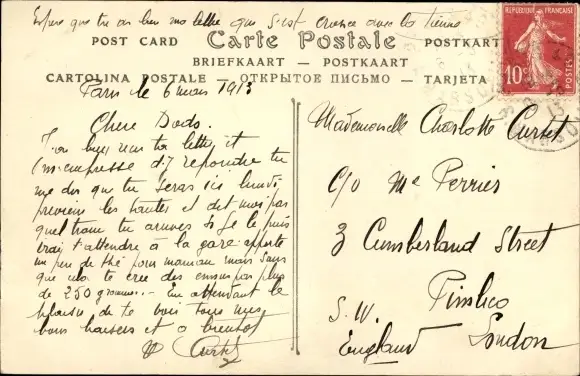 Espère que tu as bien ma lettre qui s'est croisée avec la tienne
POST CARD Carte Postale POSTKARTE
BRIEFKAART — POSTKAART
CARTOLINA POSTALE — ОТКРЫТОЕ ПИСЬМО — TARJETA
RÉPUBLIQUE FRANÇAISE
10
POSTES
Paris le 6 mars 1913
Chère Dods.
J'ai bien reçu ta lettre et
m'empresse d'y répondre tu
me dis que tu seras ici lundi
préviens les tantes et dis moi par
quel train tu arrives si je le puis
j'irai t'attendre à la gare apporte
un peu de thé pour maman mais sans
que cela te crée des ennuis pas plus
de 250 grammes. — En attendant le
plaisir de te voir tous mes
bons baisers et à bientôt
Curtet
Mademoiselle Charlotte Curtet
c/o Me Perrier
3 Cumberland Street
Pimlico
S.W. London
England